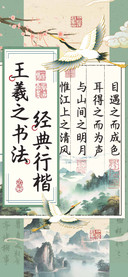 王羲之书法
经典行楷
惟江上之清风
与山间之明月
耳得之而为声
目遇之而成色